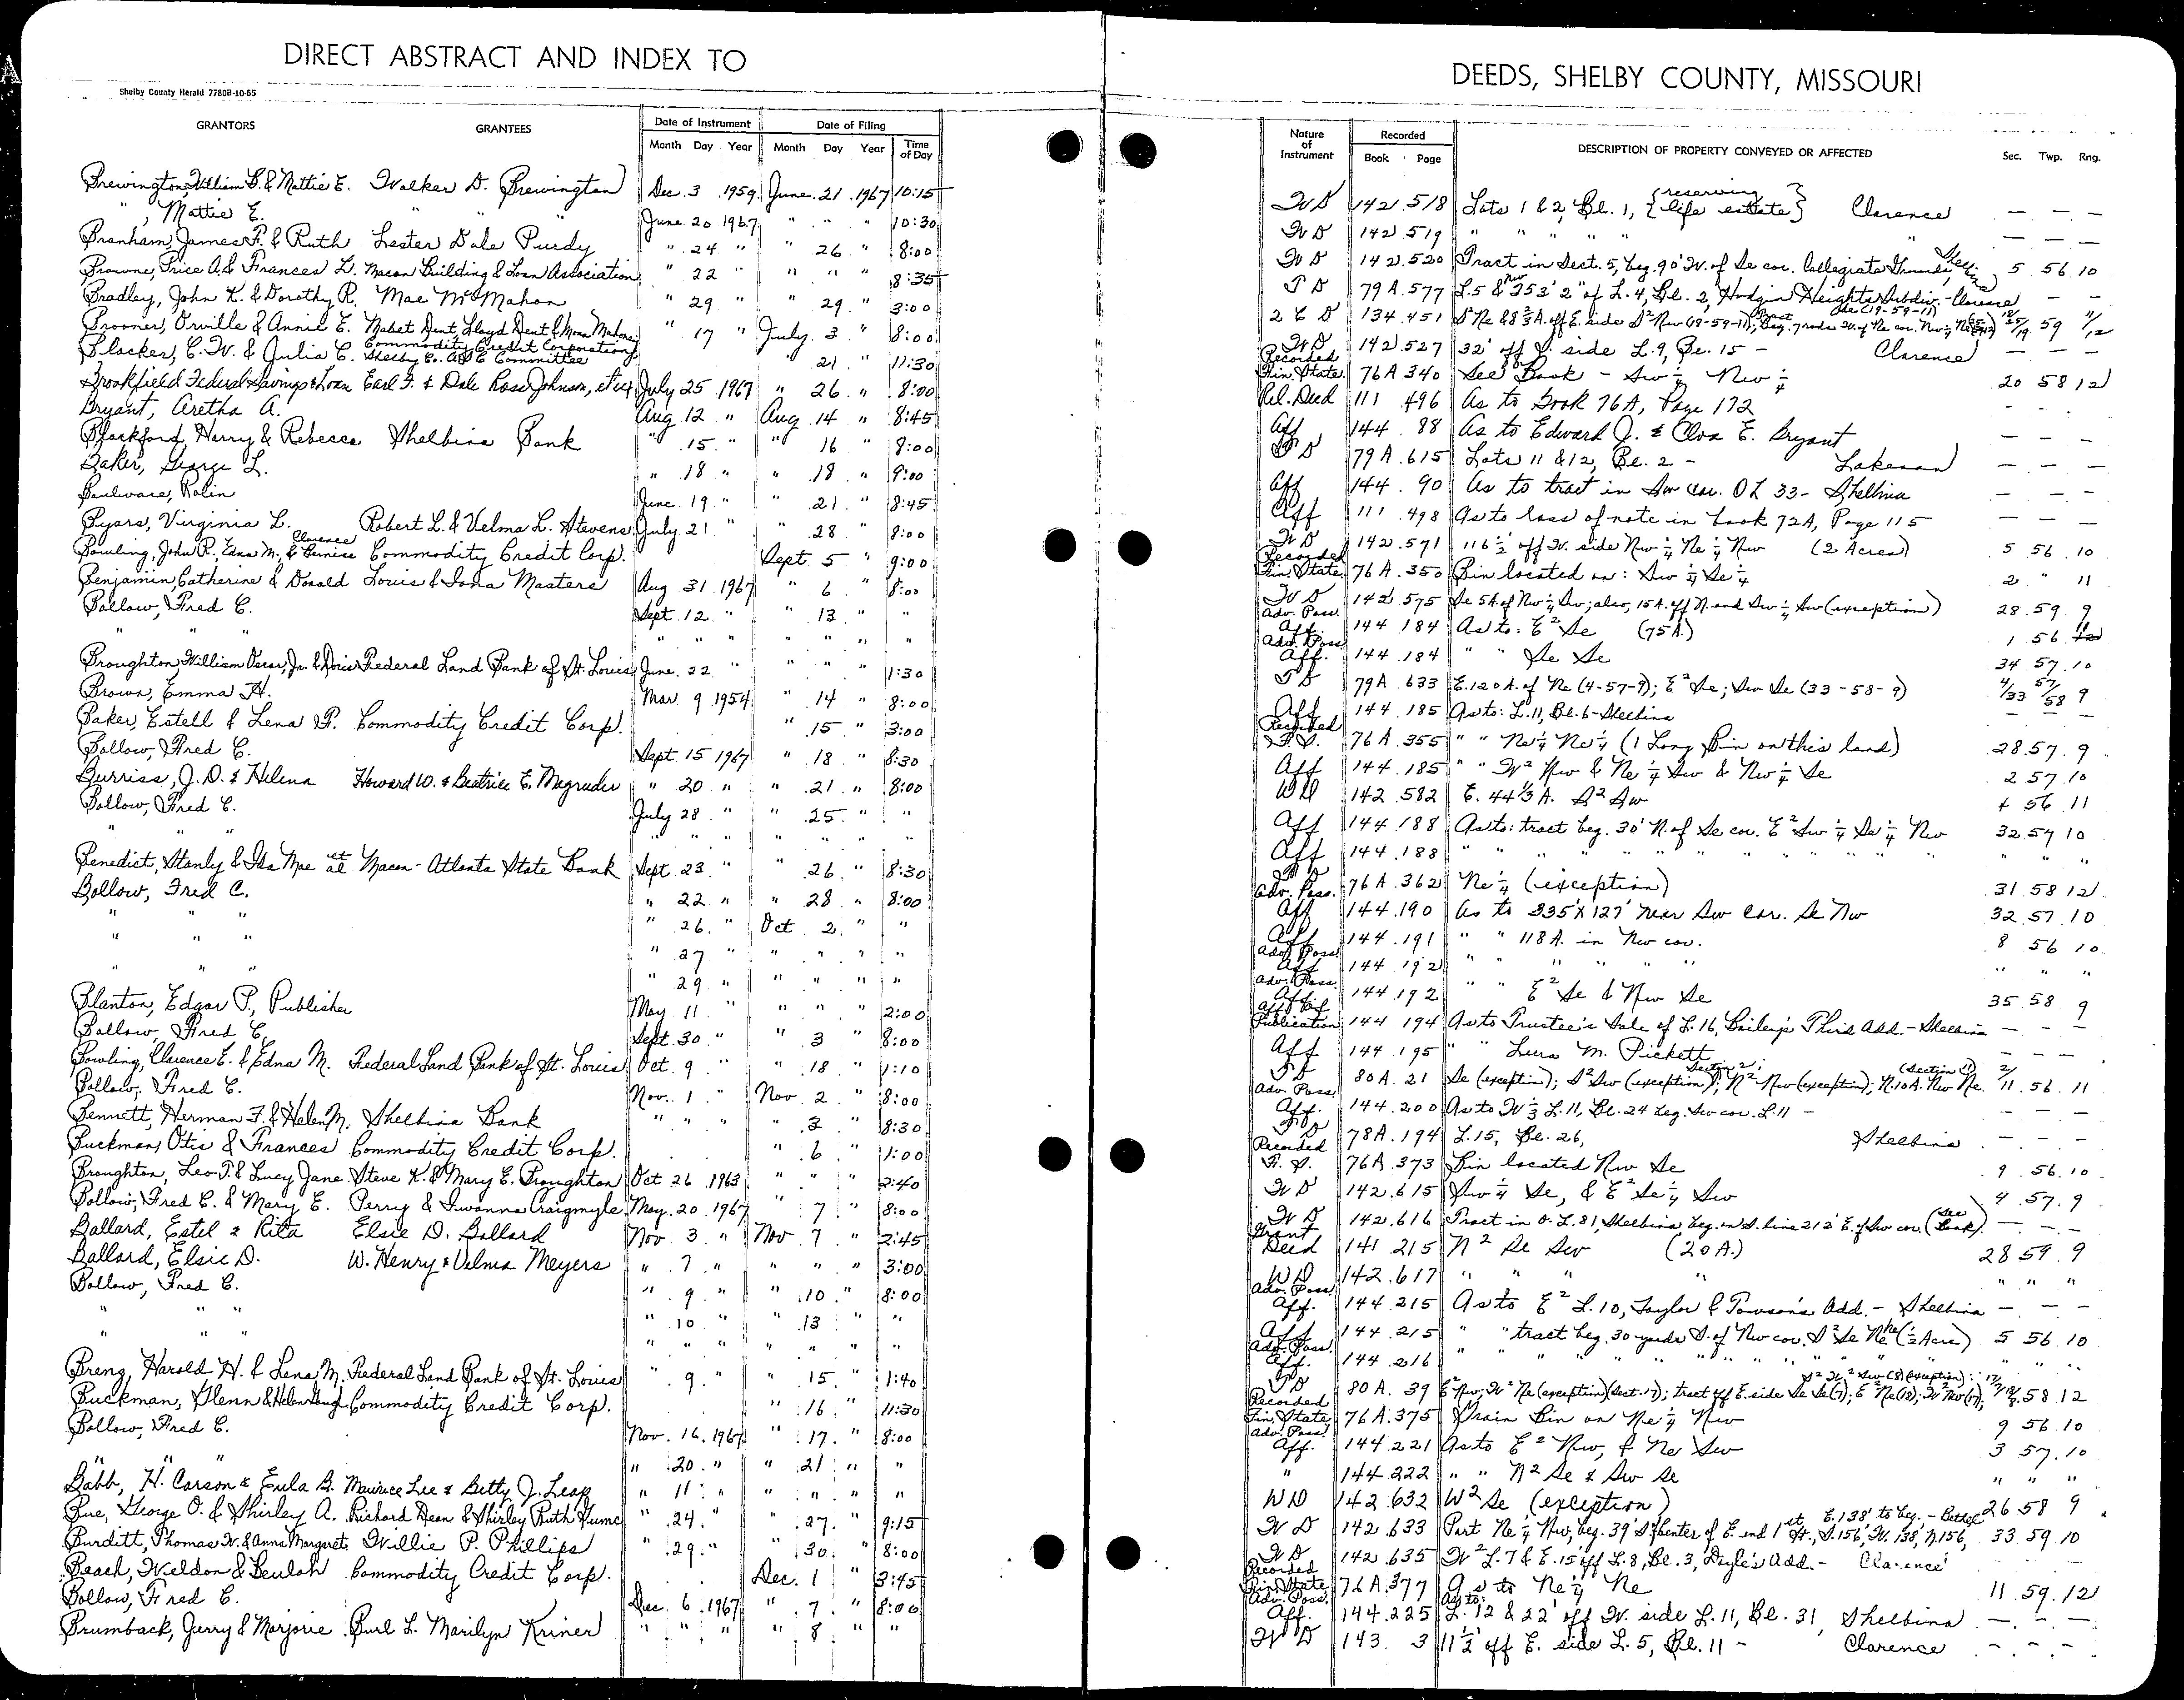 DIRECT ABSTRACT AND INDEX TO
Shelby County Herald 7780B-10-65
GRANTORS GRANTEES Date of Instrument Date of Filing
Month Day Year Month Day Year Time of Day
Brewington, William B. & Mattie E. Walker D. Brewington Dec. 3 1959 June 21 1967 10:15
" , Mattie E. " " " June 20 1967 " " " 10:30
Branham, James F. & Ruth Lester Dale Purdy " 24 " " 26 " 8:00
Browne, Price A. & Frances L. Macon Building & Loan Association " 22 " " " " 8:35
Bradley, John K. & Dorothy R. Mae McMahon " 29 " " 29 " 3:00
Brooner, Orville & Annie E. Mabet Dent, Lloyd Dent & Mona Mahoney " 17 " July 3 " 8:00
Blocker, C. W. & Julia C. Commodity Credit Corporation Shelby Co. ASC Committee " 21 " 11:30
Brookfield Federal Savings & Loan Earl F. & Dale Rose Johnson, et ux July 25 1967 " 26 " 8:00
Bryant, Aretha A. Aug 12 " Aug 14 " 8:45
Blackford, Harry & Rebecca Shelbina Bank " 15 " " 16 " 8:00
Baker, George L. " 18 " " 18 " 9:00
Boulware, Rolin June 19 " " 21 " 8:45
Byars, Virginia L. Robert L. & Velma L. Stevens July 21 " " 28 " 8:00
Bowling, John R., Edna M., Clarence & Bernice Commodity Credit Corp. Sept 5 " 9:00
Benjamin Catherine & Donald Louis & Iona Masters Aug 31 1967 " 6 " 8:00
Bollow, Fred C. Sept. 12 " " 13 " "
" " " " " " " " " "
Broughton, William Oscar, Jr. & Doris Federal Land Bank of St. Louis June 22 " " " " 1:30
Brown, Emma H. Mar. 9 1954 " 14 " 8:00
Baker, Estell & Lena F. Commodity Credit Corp. " 15 " 3:00
Bollow, Fred C. Sept 15 1967 " 18 " 8:30
Burriss, J. D. & Helena Howard W. & Beatrice E. Magruder " 20 " " 21 " 8:00
Bollow, Fred C. July 28 " " 25 " "
" " " " " " " " " "
Benedict, Stanly & Ida Mae et al Macon-Atlanta State Bank Sept. 23 " " 26 " 8:30
Bollow, Fred C. " 22 " " 28 " 8:00
" " " " 26 " Oct. 2 " "
" " " " 27 " " " " "
" " " " 29 " " " " "
Blanton, Edgar P., Publisher May 11 " " " " 2:00
Bollow, Fred C. Sept. 30 " " 3 " 8:00
Bowling, Clarence E. & Edna M. Federal Land Bank of St. Louis Oct. 9 " " 18 " 1:10
Bollow, Fred C. Nov. 1 " Nov. 2 " 8:00
Bennett, Herman F. & Helen M. Shelbina Bank " " " " 3 " 8:30
Buckman, Otis & Frances Commodity Credit Corp. " 6 " 1:00
Broughton, Leo T. & Lucy Jane Steve K. & Mary E. Broughton Oct 26 1963 " " " 2:40
Bollow, Fred C. & Mary E. Perry & Iwanna Craigmyle May 20 1967 " 7 " 8:00
Ballard, Estel & Rita Elsie D. Ballard Nov. 3 " Nov 7 " 2:45
Ballard, Elsie D. W. Henry & Velma Meyers " 7 " " " " 3:00
Bollow, Fred C. " 9 " " 10 " 8:00
" " " " 10 " " 13 " "
" " " " " " " " " "
Breng, Harold H. & Lena M. Federal Land Bank of St. Louis " 9 " " 15 " 1:40
Buckman, Glenn & Helen Commodity Credit Corp. " 16 " 11:30
Bollow, Fred C. Nov. 16 1967 " 17 " 8:00
" " " " 20 " " 21 " "
Babb, H. Carson & Eula B. Maurice Lee & Betty J. Leap " 11 " " " " "
Bue, George O. & Shirley A. Richard Dean & Shirley Ruth Hume " 24 " " 27 " 9:15
Burditt, Thomas W. & Anna Margarets Willie P. Phillips " 29 " " 30 " 8:00
Beach, Weldon & Beulah Commodity Credit Corp. Dec. 1 " 3:45
Bollow, Fred C. Dec. 6 1967 " 7 " 8:00
Brumback, Jerry & Marjorie Burl L. Marilyn Kriner " " " " 8 " "
DEEDS, SHELBY COUNTY, MISSOURI
Nature of Instrument Recorded DESCRIPTION OF PROPERTY CONVEYED OR AFFECTED Sec. Twp. Rng.
Book Page
W D 142 518 Lots 1 & 2, Bl. 1, {reserving life estate} Clarence — — —
W D 142 519 " " " " " " — — —
W D 142 520 Tract in Sect. 5, beg. 90' W. of Se cor. Collegiate Grounds, 5 56 10
T D 79A 577 L. 5 & Nw 353' 2" of L. 4, Bl. 2, Hodgin Heights Subdiv. - Clarence — —
2 C D 134 451 S² Ne & 8 3/4 A. off E. side S² Nw (18-59-11); beg. 7 rods W. of Ne cor. Nw 1/4 Ne 59 11/12
W D 142 527 32' off S. side L. 9, Bl. 15 - Clarence — — —
Recorded Fin. State 76A 340 See Book - Sw 1/4 Nw 1/4 20 58 12
Rel. Deed 111 496 As to Book 76A, Page 172 - - -
Aff 144 88 As to Edward J. & Cloa E. Bryant — — —
T D 79A 615 Lots 11 & 12, Bl. 2 - Lakenan — — —
Aff 144 90 As to tract in Sw cor. OL 33 - Shelbina — — —
Aff 111 498 As to loss of note in book 72A, Page 115 — — —
W D 142 571 116 1/2' off W. side Nw 1/4 Ne 1/4 Nw (2 Acres) 5 56 10
Recorded Fin. State 76A 350 Bin located on: Sw 1/4 Se 1/4 2 " 11
W D 142 575 Se 5A. of Nw 1/4 Sw; also, 15 A. off N. end Sw 1/4 Sw (exception) 28 59 9
Adv. Poss. Aff. 144 184 As to: E² Se (75 A.) 1 56
Adv. Poss Aff. 144 184 " " Se Se 34 57 10
T D 79A 633 E. 120 A. of Ne (4-57-9); E² Se; Sw Se (33-58-9) 4/33 57/58 9
Aff 144 185 As to: L. 11, Bl. 6 - Shelbina — —
Recorded F. S. 76A 355 " " Ne 1/4 Ne 1/4 (1 Long Bin on this land) 28 57 9
Aff 144 185 " " W² Nw & Ne 1/4 Sw & Nw 1/4 Se 2 57 10
WD 142 582 E. 44 1/3 A. S² Sw 4 56 11
Aff 144 188 As to: tract beg. 30' N. of Se cor. E² Sw 1/4 Se 1/4 Nw 32 57 10
Aff 144 188 " " " " " " " " " " " "
T D 76A 362 Ne 1/4 (exception) 31 58 12
Adv. Poss. Aff 144 190 As to 335' X 127' near Sw cor. Se Nw 32 57 10
Aff 144 191 " " 118 A. in Nw cor. 8 56 10
Adv. Poss Aff 144 192 " " " " " " " " "
Adv. Poss. Aff. 144 192 " " E² Se & Nw Se 35 58 9
Aff. of Publication 144 194 As to Trustee's Sale of L. 16, Bailey's Third Add. - Shelbina — — —
Aff 144 195 " " Lura M. Pickett — — —
T D 80A 21 Se (exception); S² Sw (exception) Section 2; N² Nw (exception); N. 10 A. Nw Ne (Section 11) 2/11 56 11
Adv. Poss. Aff. 144 200 As to W 1/3 L. 11, Bl. 24 beg. Sw cor. L. 11 - — — —
T D 78A 194 L. 15, Bl. 26, Shelbina - - -
Recorded F. S. 76A 373 Bin located Nw Se 9 56 10
W D 142 615 Sw 1/4 Se, & E² Se 1/4 Sw 4 57 9
W D 142 616 Tract in O. L. 81, Shelbina beg. on S. line 212' E. of Sw cor. (See Book) — - -
Grant Deed 141 215 N² Se Sw (20 A.) 28 59 9
WD 142 617 " " " " " " "
Adv. Poss Aff. 144 215 As to E² L. 10, Taylor & Towson's Add. - Shelbina — — —
Aff 144 215 " " tract beg. 30 yards S. of Nw cor. S² Se Ne (1/2 Acre) 5 56 10
Adv. Poss. Aff. 144 216 " " " " " " " " " " " "
T D 80A 39 E² Nw; W² Ne (exception) (Sect. 17); tract off E. side Se Se (7); E² Ne (18); W² Nw (17); S² W² Sw (8) (exception); 58 12
Recorded Fin. State 76A 375 Grain Bin on Ne 1/4 Nw 9 56 10
Adv. Poss. Aff. 144 221 As to E² Nw, & Ne Sw 3 57 10
" 144 222 " " N² Se & Sw Se " " "
WD 142 632 W² Se (exception) 26 58 9
W D 142 633 Part Ne 1/4 Nw, beg. 39' S. of center of E. end 1st St., S. 156', W. 138', N. 156, E. 138' to beg. - Bethel 33 59 10
W D 142 635 W² L. 7 & E. 15' off L. 8, Bl. 3, Doyle's Add. - Clarence
Recorded Fin. State 76A 377 As to Ne 1/4 Ne 11 59 12
Adv. Poss. Aff. 144 225 As to: L. 12 & 22' off W. side L. 11, Bl. 31, Shelbina — — —
W D 143 3 11 1/2' off E. side L. 5, Bl. 11 - Clarence - - -